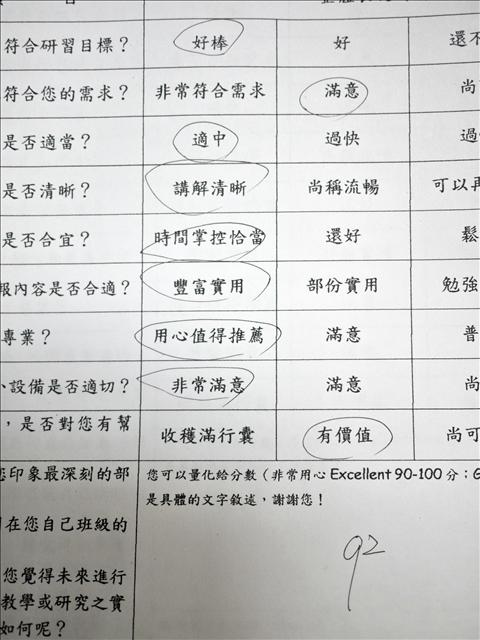 符合研習目標？ 好棒 好 還不
符合您的需求？ 非常符合需求 滿意 尚
是否適當？ 適中 過快 過
是否清晰？ 講解清晰 尚稱流暢 可以再
是否合宜？ 時間掌控恰當 還好 鬆
報內容是否合適？ 豐富實用 部份實用 勉強
專業？ 用心值得推薦 滿意 普
、設備是否適切？ 非常滿意 滿意 尚
，是否對您有幫 收穫滿行囊 有價值 尚可
您印象最深刻的部
您可以量化給分數（非常用心 Excellent 90-100 分；G
是具體的文字敘述，謝謝您！
在您自己班級的
92
您覺得未來進行
教學或研究之實
如何呢？